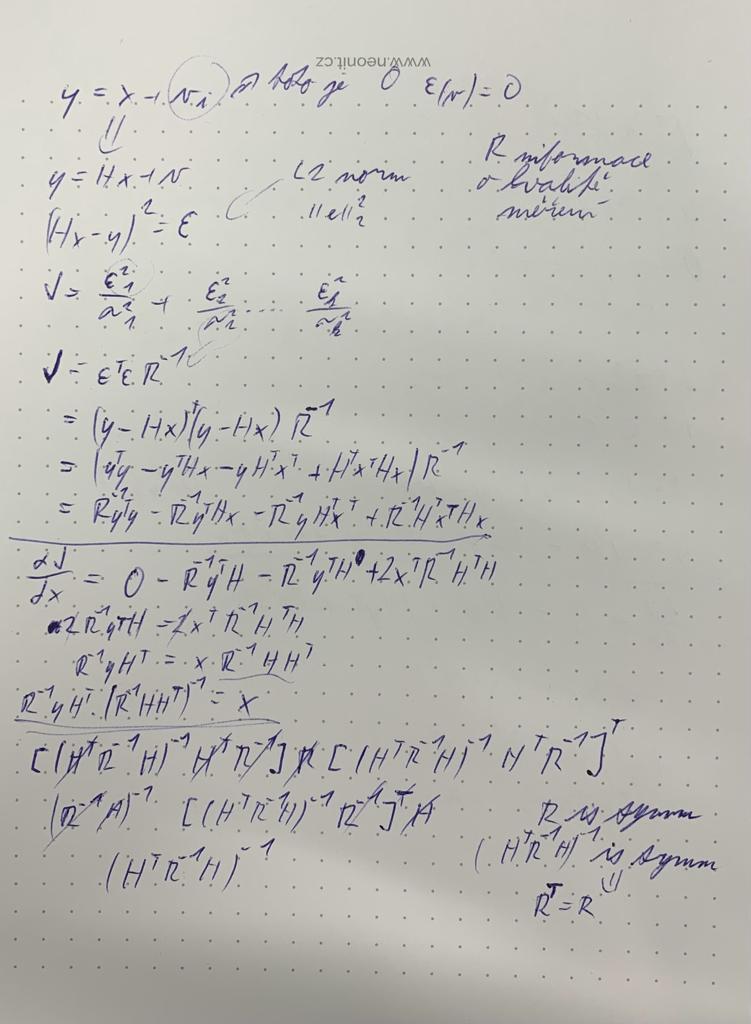 www.neonit.cz
y = x + v_i → toto je 0 ε(v) = 0
⇓
y = Hx + v
L2 norm
||e||₂²
R informace
o kvalitě
měření
(Hx - y)² = ε
J = ε₁²/σ₁² + ε₂²/σ₂² .... ε_k²/σ_k²
J = εᵀε R⁻¹
= (y - Hx)ᵀ(y - Hx) R⁻¹
= (yᵀy - yᵀHx - yHᵀxᵀ + HᵀxᵀHx) R⁻¹
= R⁻¹yᵀy - R⁻¹yᵀHx - R⁻¹yHᵀxᵀ + R⁻¹HᵀxᵀHx
dJ/dx = 0 - R⁻¹yᵀH - R⁻¹yᵀH + 2xᵀR⁻¹HᵀH
2R⁻¹yᵀH = 2xᵀR⁻¹HᵀH
R⁻¹yHᵀ = x R⁻¹HHᵀ
R⁻¹yHᵀ · (R⁻¹HHᵀ)⁻¹ = x
[(HᵀR⁻¹H)⁻¹ HᵀR⁻¹] R [(HᵀR⁻¹H)⁻¹ HᵀR⁻¹]ᵀ
(R⁻¹H)⁻¹ [(HᵀR⁻¹H)⁻¹ R⁻¹]ᵀ H
(HᵀR⁻¹H)⁻¹
R is symm
(HᵀR⁻¹H)⁻¹ is symm
⇓
Rᵀ = R